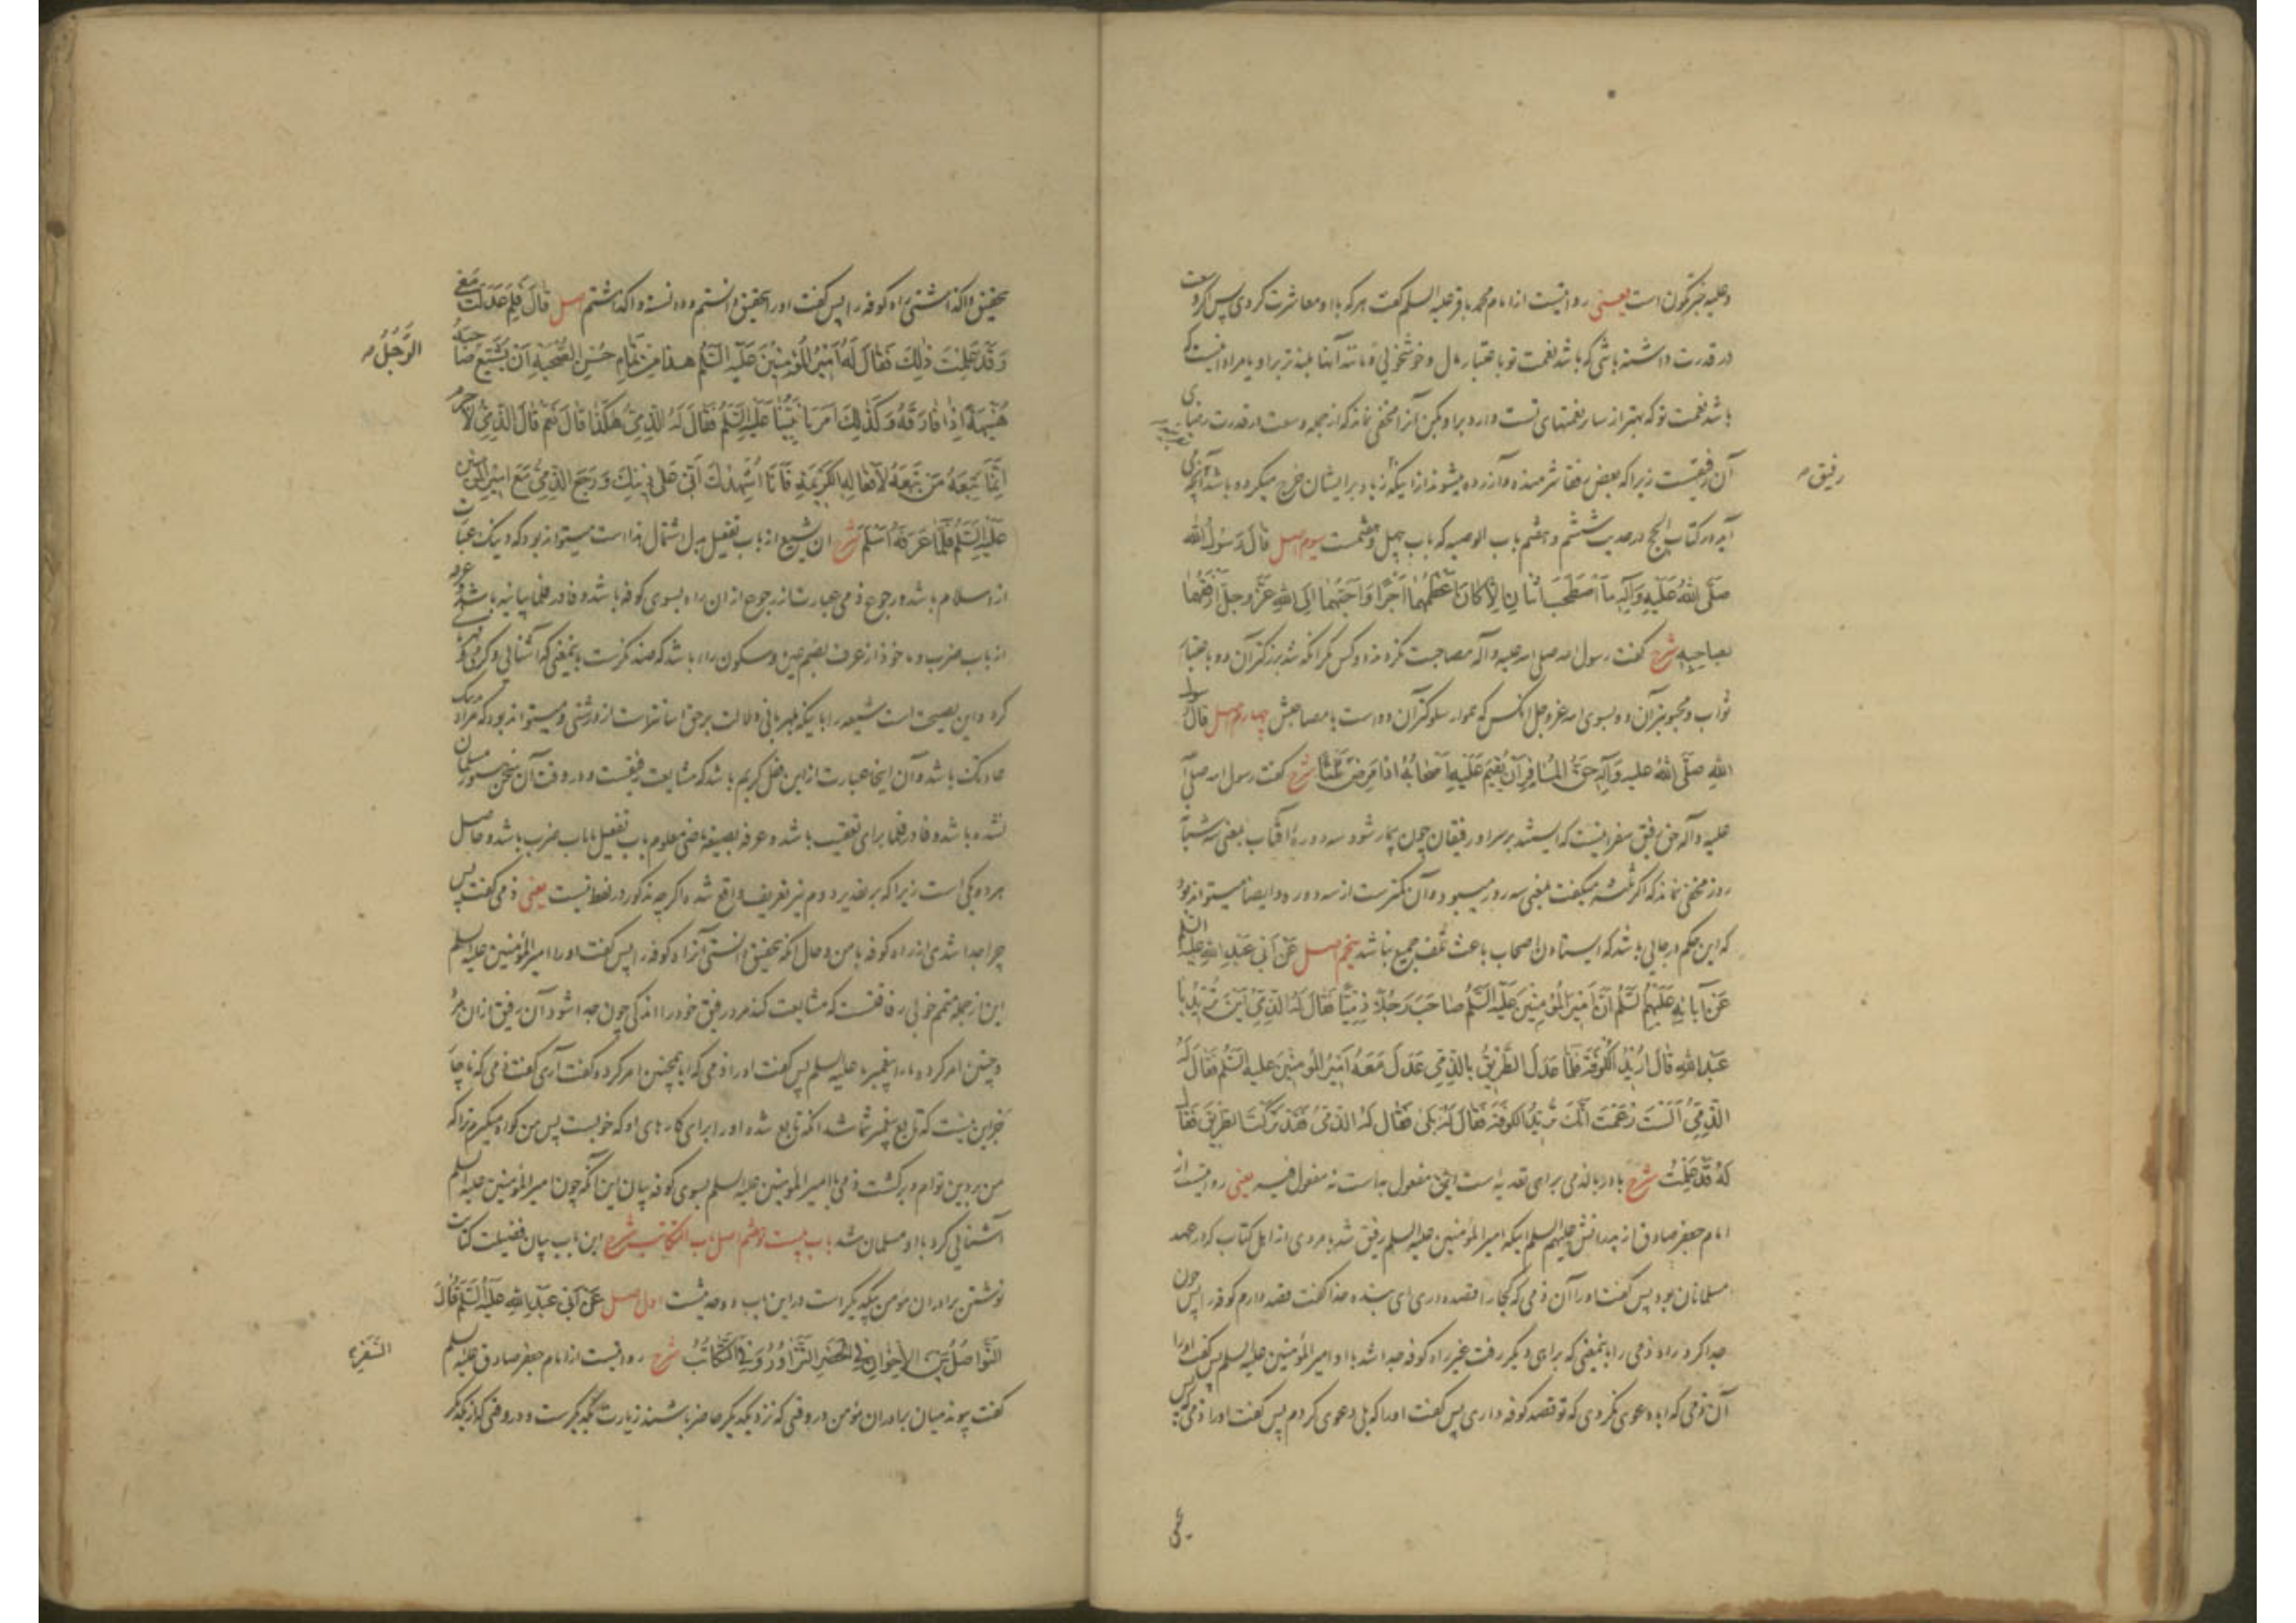 وعلیه خبرکون است یعنی روایتست از امام محمد باقر علیه السلم گفت هر که با او معاشرت کردی پس اگر وسعت
در قدرت داشته باشی که باشد نعمت تو باعتبار مال و خوشخویی و مانند آنها بلندتر بر او یا مراد اینست که
باشد نعمت تو که بهتر از سایر نعمتهای تست وارد بر او بکن آنرا مخفی نماند که از جمله وسعت در قدرت رضای
رفیق
آن رفیقست زیرا که بعض رفقا شرمنده و آزرده میشوند از اینکه زیاد بر ایشان خرج میکرده باشد آنچه
آید در کتاب الحج در حدیث ششم و هفتم باب الوصیه که باب چهل و هشتمست سیوم اصل قال رسول الله
صلّی الله علیه وآله ما اصطحب اثنان الا کان اعظمهما اجرا واحبهما الی الله عزّ وجلّ ارفقهما
بصاحبه شرح گفت رسول الله صلی الله علیه وآله مصاحبت نکرده اند دو کس مگر آنکه شد بزرگتر آن دو باعتبار
ثواب و محبوبتر آن دو بسوی الله عز وجل آنکس که هموار سلوکتر آن دو است با مصاحبش چهارم اصل قال رسول
الله صلّی الله علیه وآله حقّ المسافر ان یقیم علیه اصحابه اذا مرض ثلثا شرح گفت رسول الله صلی الله
علیه وآله حق رفیق سفر اینست که ایستند بر سر او رفیقان چون بیمار شود سه دورهٔ آفتاب یعنی سه شبا
روز مخفی نماند که اگر ثلثه میگفت بمعنی سه روز میبود و آن کمترست از سه دوره و ایضا میتواند بود
که این حکم در جایی باشد که ایستادن اصحاب باعث تلف جمیع نباشد پنجم اصل عن ابی عبد الله علیه السلم
عن آبائه علیهم السّلم ان امیر المؤمنین علیه السّلم صاحب رجلا ذمّیّا فقال له الذمّی این ترید یا
عبد الله قال ارید الکوفة فلما عدل الطریق بالذمّی عدل معه امیر المؤمنین علیه السّلم فقال له
الذمّی الست زعمت انّک ترید الکوفة فقال له بلی فقال له الذمّی فقد ترکت الطریق فقال
له قد علمت شرح باء در بالذمی برای تعدیه است الطریق مفعول به است نه مفعول فیه یعنی روایتست از
امام جعفر صادق از پدرانش علیهم السلم اینکه امیر المؤمنین علیه السلم رفیق شد با مردی از اهل کتاب که در عهد
مسلمانان بود پس گفت او را آن ذمی که کجا را قصد داری ای بنده خدا گفت قصد دارم کوفه را پس چون
جدا کرد راه ذمی را باینمعنی که برای دیگر رفت غیر راه کوفه جدا شد با او امیر المؤمنین علیه السلم پس گفت او را
آن ذمی که ایا دعوی نکردی که تو قصد کوفه داری پس گفت او را که بلی دعوی کردم پس گفت او را ذمی که پس
تحقیق واگذاشتی راه کوفه را پس گفت او را تحقیق دانستم و دانسته واگذاشتم اصل قال فلم عدلت معی
وقد علمت ذلک فقال له امیر المؤمنین علیه السّلم هذا من تمام حسن الصّحبة ان یشیّع صاحبه
الرّجل
هنیهة اذا فارقه وکذلک امرنا نبیّنا علیه السّلم فقال له الذمّی هکذا قال نعم قال الذمّی لا جرم
انّما تبعه من تبعه لافعاله الکریمة فانا اشهدک انّی علی دینک ورجع الذمّی مع امیر المؤمنین
علیه السّلم فلمّا عرفه اسلم شرح ان یشیّع از باب تفعیل بدل اشتمال هذا است میتواند بود که دینک عبارت
از اسلام باشد و رجوع ذمی عبارت از رجوع از ان راه بسوی کوفه باشد و فا در فلما بیانیه باشد و عرفه
از باب ضرب و ماخوذ از عرف بضم عین و سکون راء باشد که ضد نکرست باینمعنی که آشنایی و گرمی با او
کرد و این نصیحت است شیعه را باینکه بمهربانی دلالت بر حق آسانتر است از درشتی و میتواند بود که مراد بدینک
عادتک باشد و آن اینجا عبارت از این فعل کریم باشد که مشایعت رفیقست و در وقت آن سخن هنوز مسلمان
نشده باشد و فا در فلما برای تعقیب باشد و عرفه بصیغه ماضی معلوم باب تفعیل یا باب ضرب باشد و حاصل
هر دو یکی است زیرا که بر تقدیر دوم نیز تعریف واقع شده اگرچه مذکور در لفظ نیست یعنی ذمی گفت پس
چرا جدا شدی از راه کوفه با من و حال آنکه تحقیق دانستی آنرا که راه کوفه را پس گفت او را امیر المؤمنین علیه السلم
این از جمله متمم خوبی رفاقتست که مشایعت کند مرد رفیق خود را اندکی چون جدا شود آن رفیق از ان مرد
و چنین امر کرده ما را پیغمبر ما علیه السلم پس گفت او را ذمی که ایا همچنین امر کرده گفت آری گفت ذمی که ناچار
جز این نیست که تابع پیغمبر شما شد آنکه تابع شد او را برای کارهای او که خوبست پس من گواه میگیرم ترا که
من بر دین توام و برگشت ذمی با امیر المؤمنین علیه السلم بسوی کوفه بیان این آنکه چون امیر المؤمنین علیه السلم
آشنایی کرد با او مسلمان شد باب بیست و هشتم اصل باب التکاتب شرح این باب بیان فضیلت کتابت
نوشتن برادران مؤمن بیکدیگر است در این باب دو حدیثست اول اصل عن ابی عبد الله علیه السّلم قال
التّواصل بین الاخوان فی الحضر التّزاور وفی السّفر التّکاتب شرح روایتست از امام جعفر صادق علیه السلم
گفت پیوند میان برادران مؤمن در وقتی که نزد یکدیگر حاضر باشند زیارت یکدیگرست و در وقتی که از یکدیگر